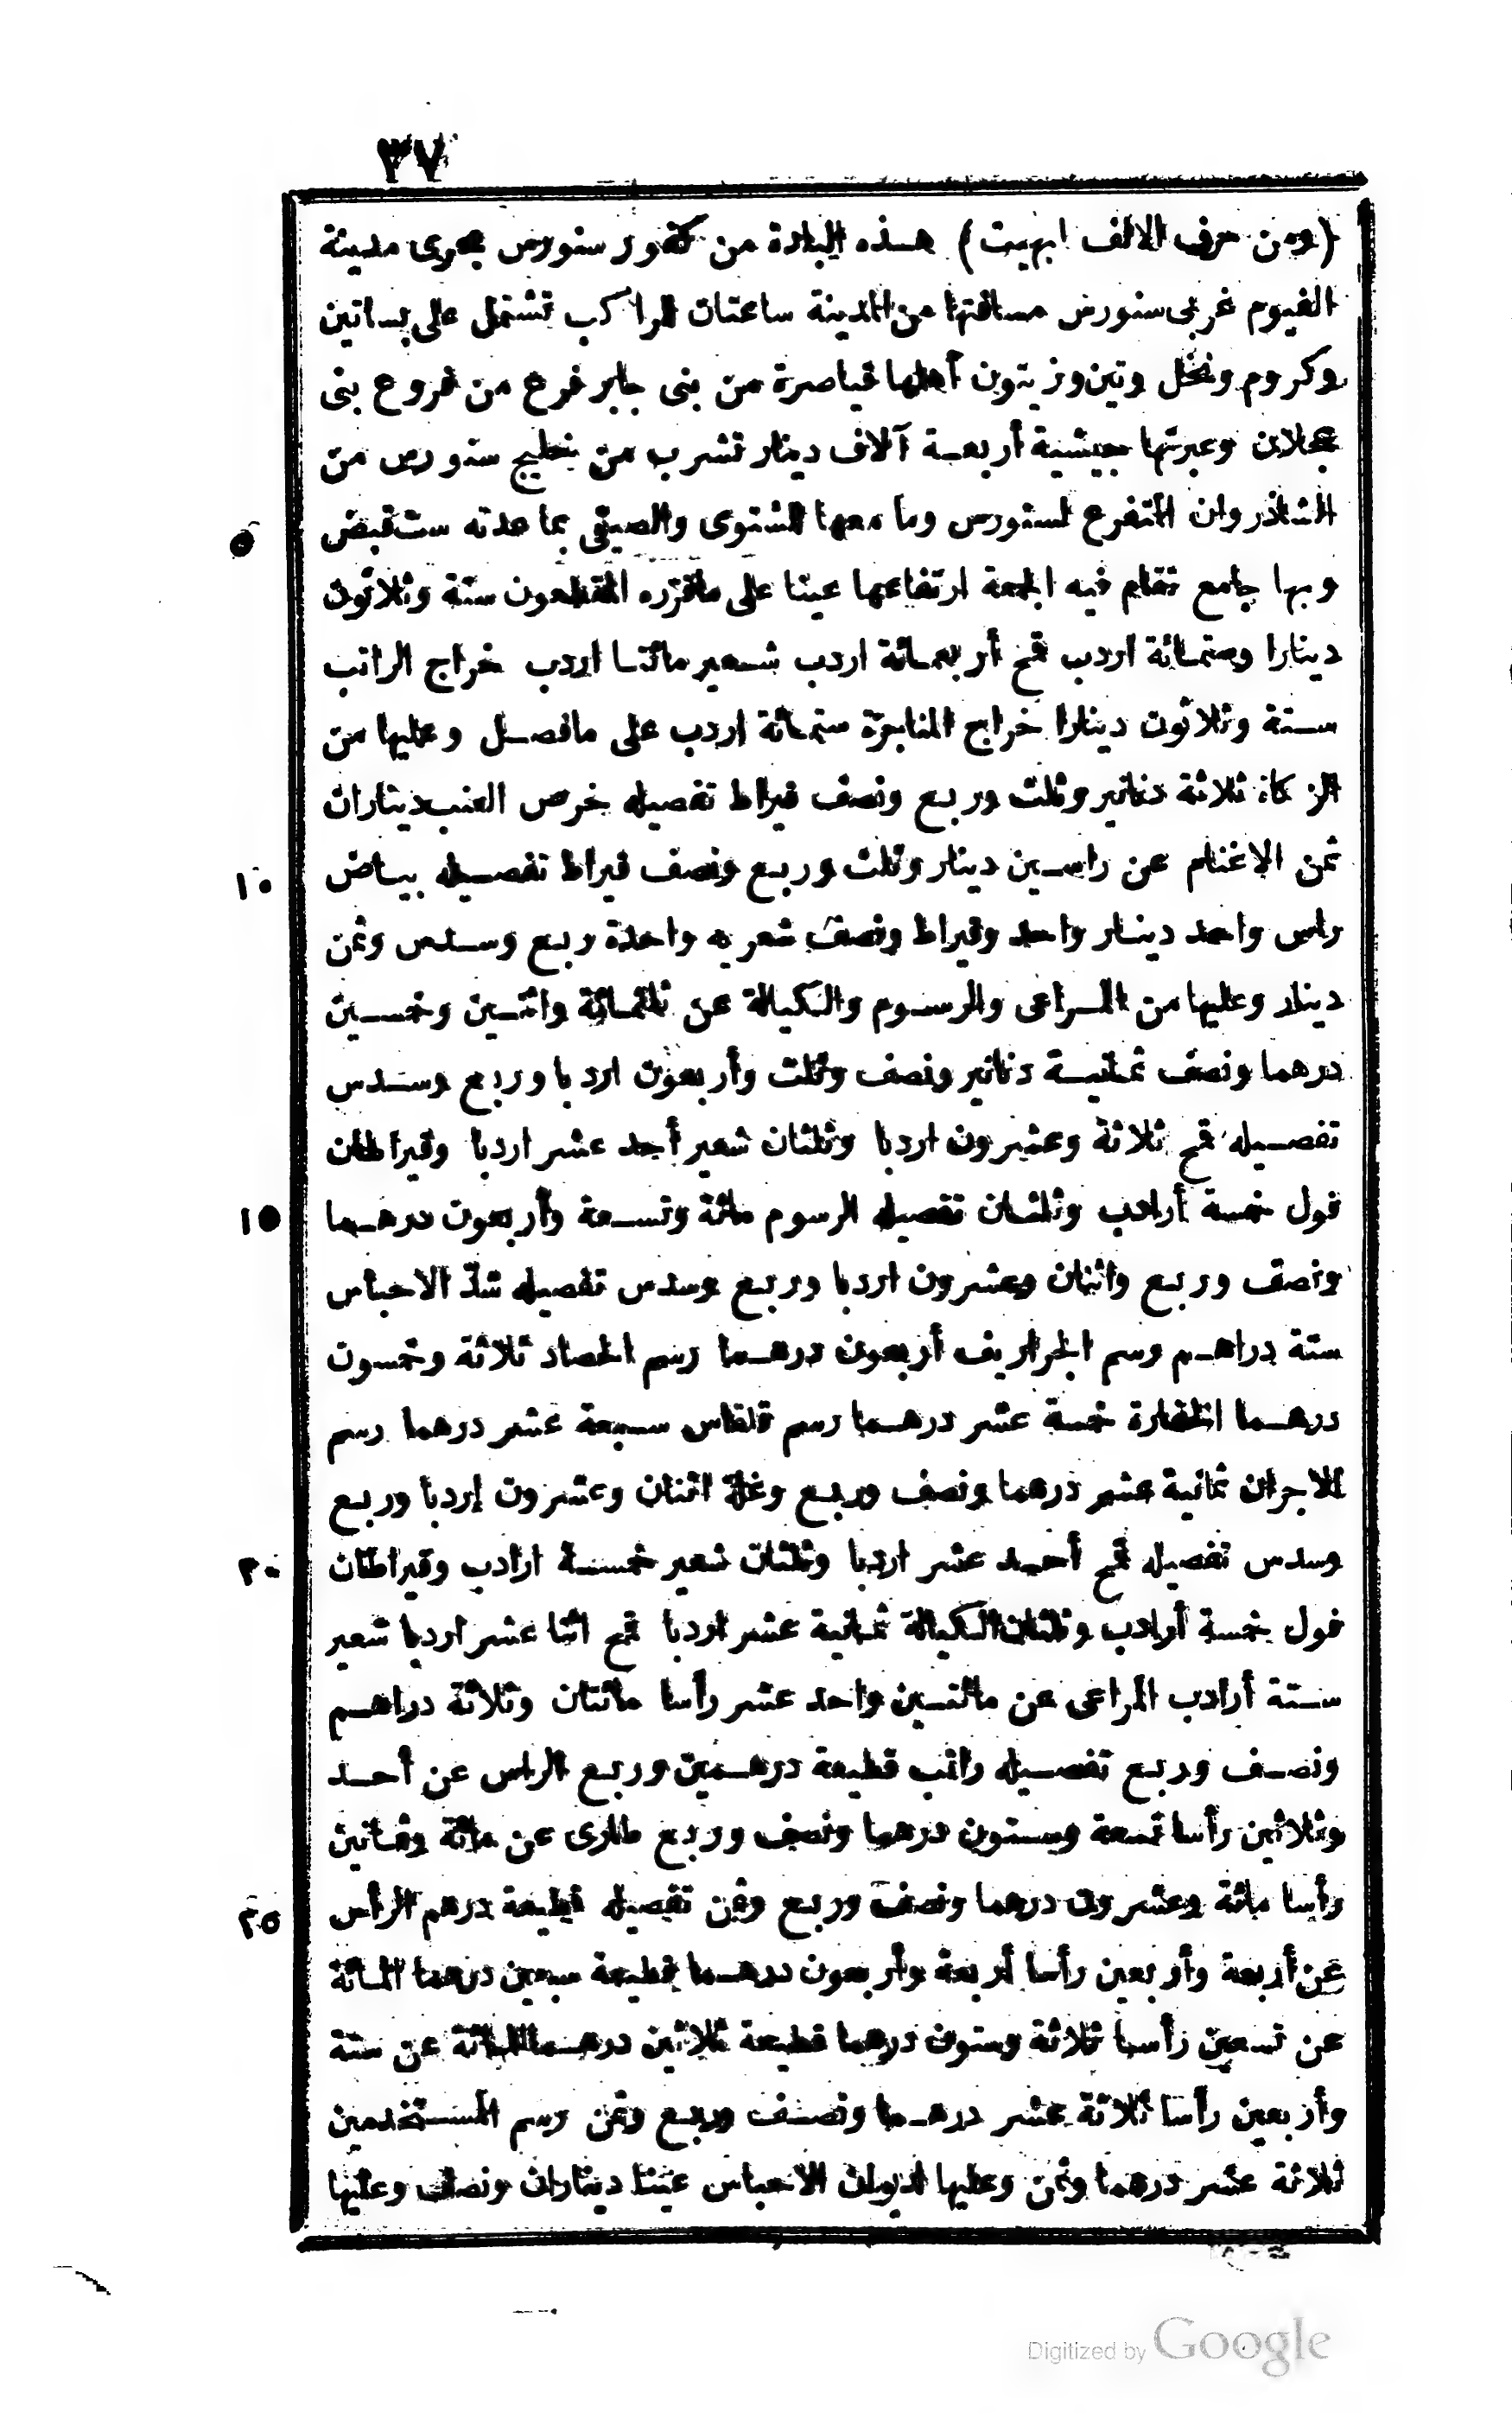 ٣٧
(ومن حرف الالف ابهيت) هذه البلدة من كفور سنورس بحرى مدينة
الفيوم غربى سنورس مسافتها من المدينة ساعتان للراكب تشتمل على بساتين
وكروم ونخل وتين وزيتون أهلها قياصرة من بنى جابر فرع من فروع بنى
عجلان وعبرتها جيشية أربعة آلاف دينار تشرب من خليج سنورس من
٥ الشاذروان المتفرع لسنورس وما معها الشتوى والصيفى بما عدته ست قبض
وبها جامع تقام فيه الجمعة ارتفاعها عينا على ما قرره المقطعون ستة وثلاثون
دينارا وستمائة اردب قمح أربعمائة اردب شعير مائتا اردب خراج الراتب
ستة وثلاثون دينارا خراج المناجزة ستمائة اردب على ما فصل وعليها من
الزكاة ثلاثة دنانير وثلث وربع ونصف قيراط تفصيله خرص العنب ديناران
١٠ ثمن الاغنام عن راسين دينار وثلث وربع ونصف قيراط تفصيله بياض
راس واحد دينار واحد وقيراط ونصف شعريه واحدة ربع وسدس وثمن
دينار وعليها من المراعى والرسوم والكيالة عن ثلثمائة واثنين وخمسين
درهما ونصف ثمانية دنانير ونصف وثلث وأربعون اردبا وربع وسدس
تفصيله قمح ثلاثة وعشرون اردبا وثلثان شعير أحد عشر اردبا وقيراطان
١٥ فول خمسة أرادب وثلثان تفصيله الرسوم مائة وتسعة وأربعون درهما
ونصف وربع واثنان وعشرون اردبا وربع وسدس تفصيله شدّ الاحباس
ستة دراهم رسم الجراريف أربعون درهما رسم الحصاد ثلاثة وخمسون
درهما الخفارة خمسة عشر درهما رسم قلقاس سبعة عشر درهما رسم
الاجران ثمانية عشر درهما ونصف وربع وغلة اثنان وعشرون إردبا وربع
٢٠ وسدس تفصيله قمح أحد عشر اردبا وثلثان شعير خمسة ارادب وقيراطان
فول خمسة أرادب وثلثان الكيالة ثمانية عشر اردبا قمح اثنا عشر اردبا شعير
ستة أرادب المراعى عن مائتين واحد عشر رأسا مائتان وثلاثة دراهم
ونصف وربع تفصيله راتب قطيعة درهمين وربع الراس عن أحد
وثلاثين رأسا تسعة وستون درهما ونصف وربع طارى عن مائة وثمانين
٢٥ رأسا مائة وعشرون درهما ونصف وربع وثمن تفصيله قطيعة درهم الرأس
عن أربعة وأربعين رأسا أربعة وأربعون درهما قطيعة سبعين درهما المائة
عن تسعين رأسا ثلاثة وستون درهما قطيعة ثلاثين درهما المائة عن ستة
وأربعين رأسا ثلاثة عشر درهما ونصف وربع وثمن رسم المستخدمين
ثلاثة عشر درهما وثمن وعليها لديوان الاحباس عينا ديناران ونصف وعليها
Digitized by Google